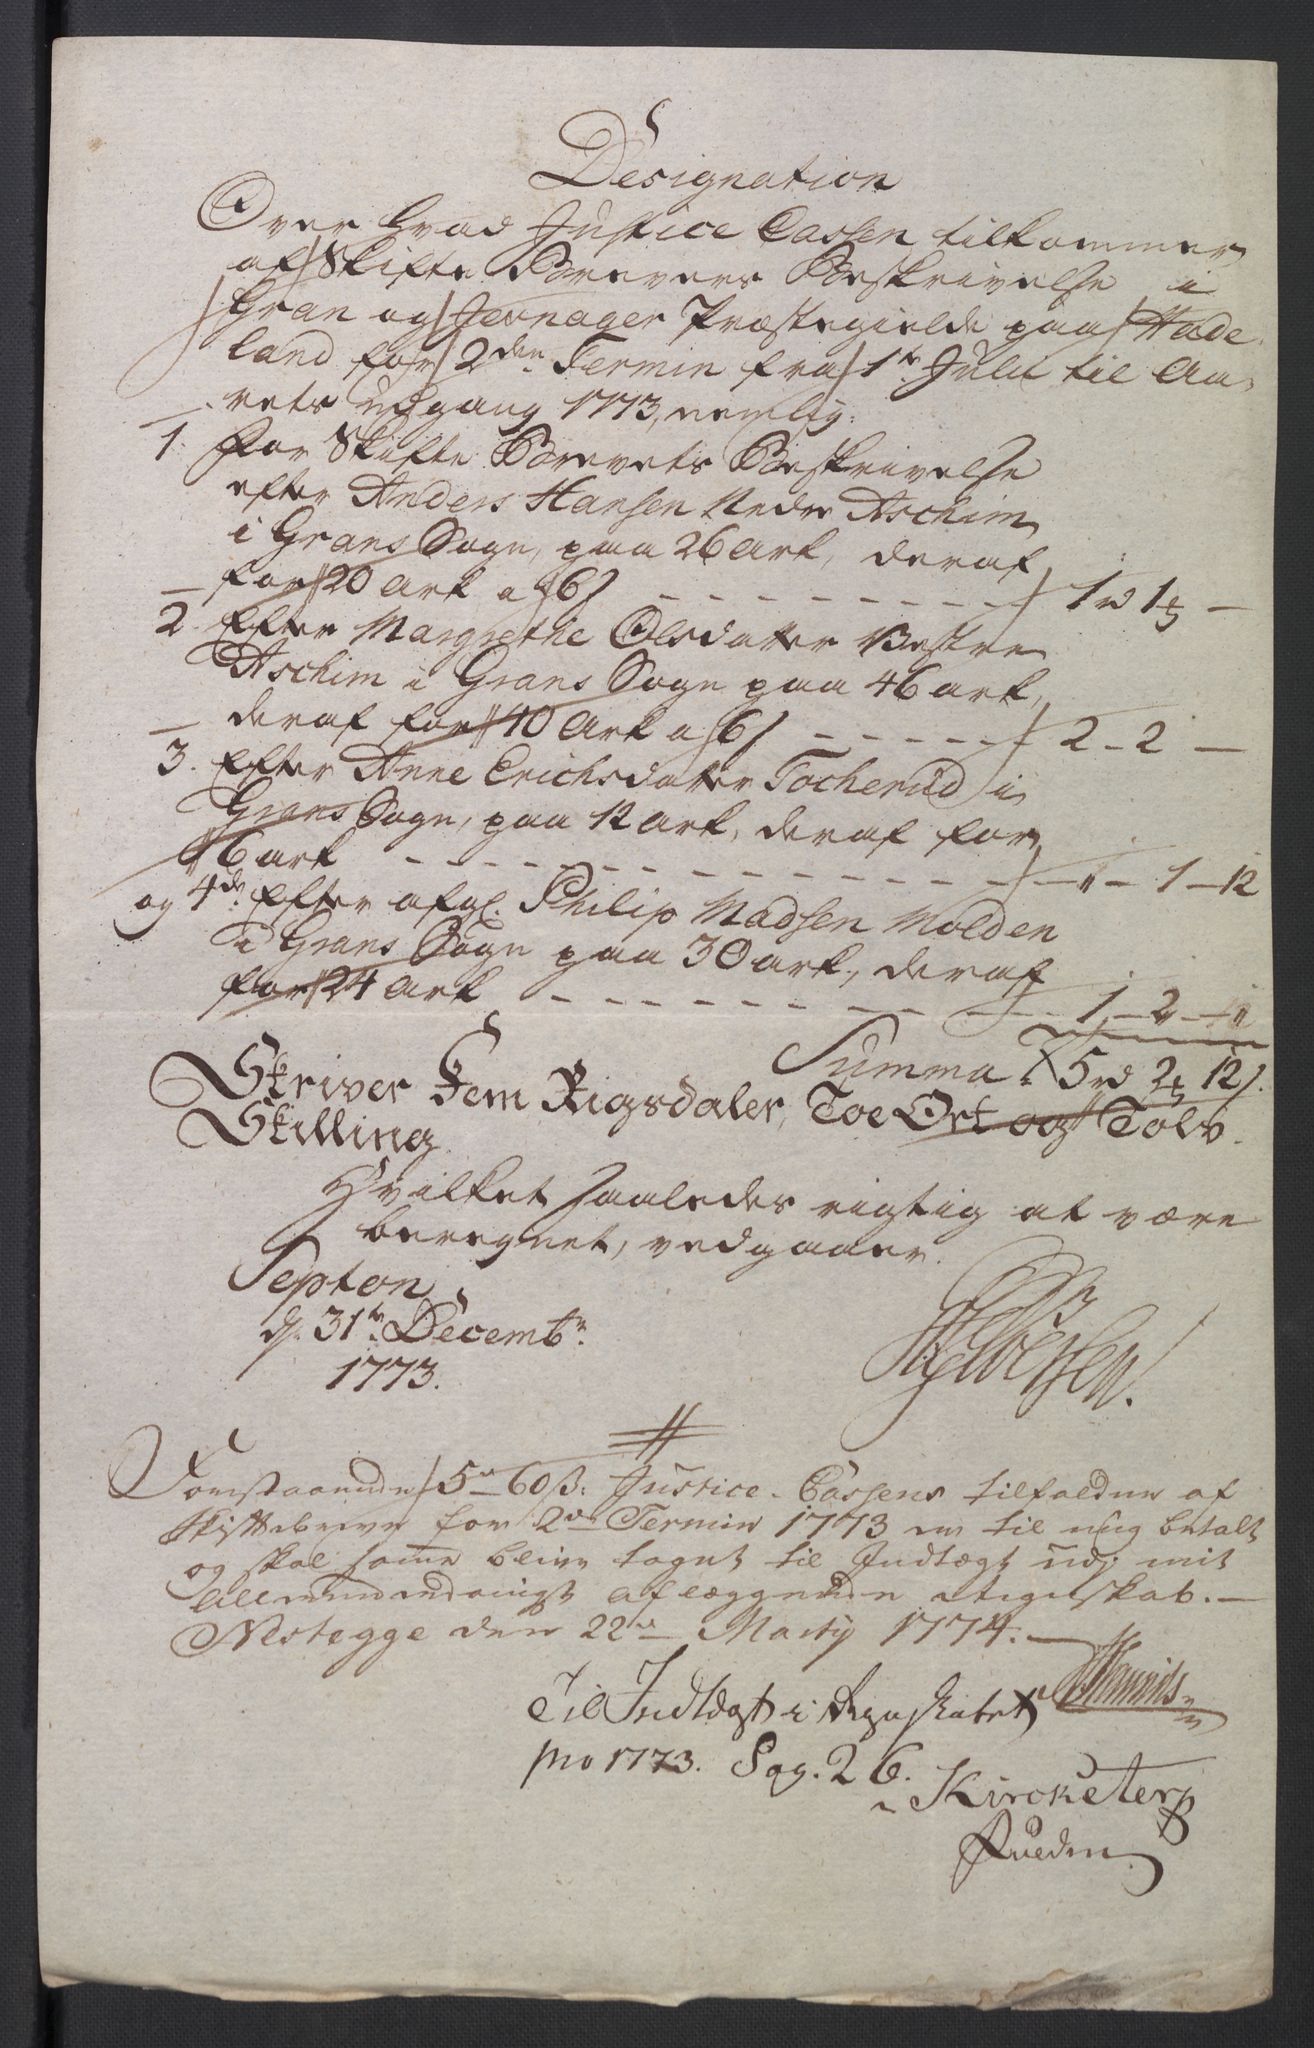 Designation
Over hvad Justice Cassen tilkommer
af Skifte Brevers Beskrivelse i
Gran og Jevnager Præstegielde paa Hade
land for 2den Termin fra 1te Julii til Aa-
rets udgang 1773, nemlig:
1. For Skifte Brevets Beskrivelse
efter Anders Hansen Nedre Aschim
i Grans Sogn, paa 26 Ark, deraf
for 20 Ark a 6 s - - - - - - - - - 1 rd 1 ort —
2. Efter Margrethe Olsdatter Vestre
Aschim i Grans Sogn paa 46 ark,
deraf for 40 Ark a 6 s - - - - - 2 - 2 —
3. Efter Anne Erichsdatter Tocherud i
Grans Sogn, paa 12 ark, deraf for
6 ark - - - - - - - - - - - - " - 1 - 12
og 4de Efter afgl. Philip Madsen Molden
i Grans Sogn paa 30 ark, deraf
for 24 Ark - - - - - - - - - - 1 - 2 - "
Summa 5 rd 2 ort 12 s.
Skriver Fem Rigsdaler, Toe Ort og Tolv
Skilling.
Hvilket saaledes rigtig at være
beregnet, vedgaaer.
Septon
d. 31te Decembr.
1773.
Foranstaaende 5 rd 60 ß. Justice-Cassens tilfaldne af
Skiftebreve for 2den Termin 1773 er til mig betalt
og skal samme blive taget til Indtægt udj mit
allerunderdanigst aflæggende Regnskab. —
Nestegge den 22de Martij 1774. —
Til Indtægt i Regnskabet
pro 1773. Pag. 26.
Kircketerp